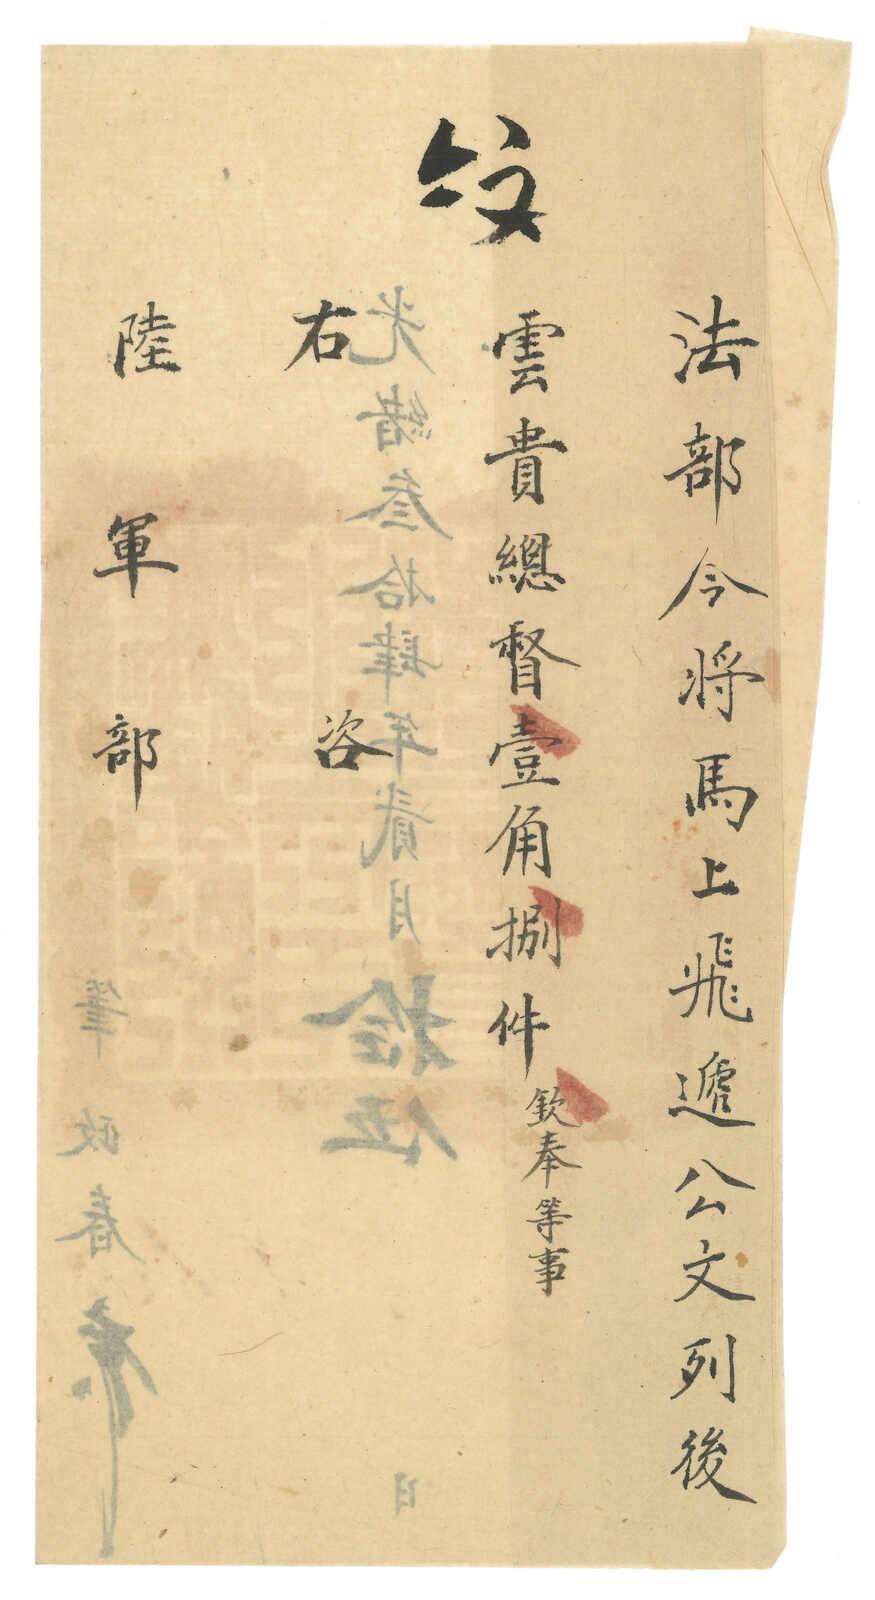 法部今將馬上飛遞公文列後
雲貴總督壹角捌件欽奉等事
右咨
陸軍部
光緒叁拾肆年貳月拾伍日
筆政春